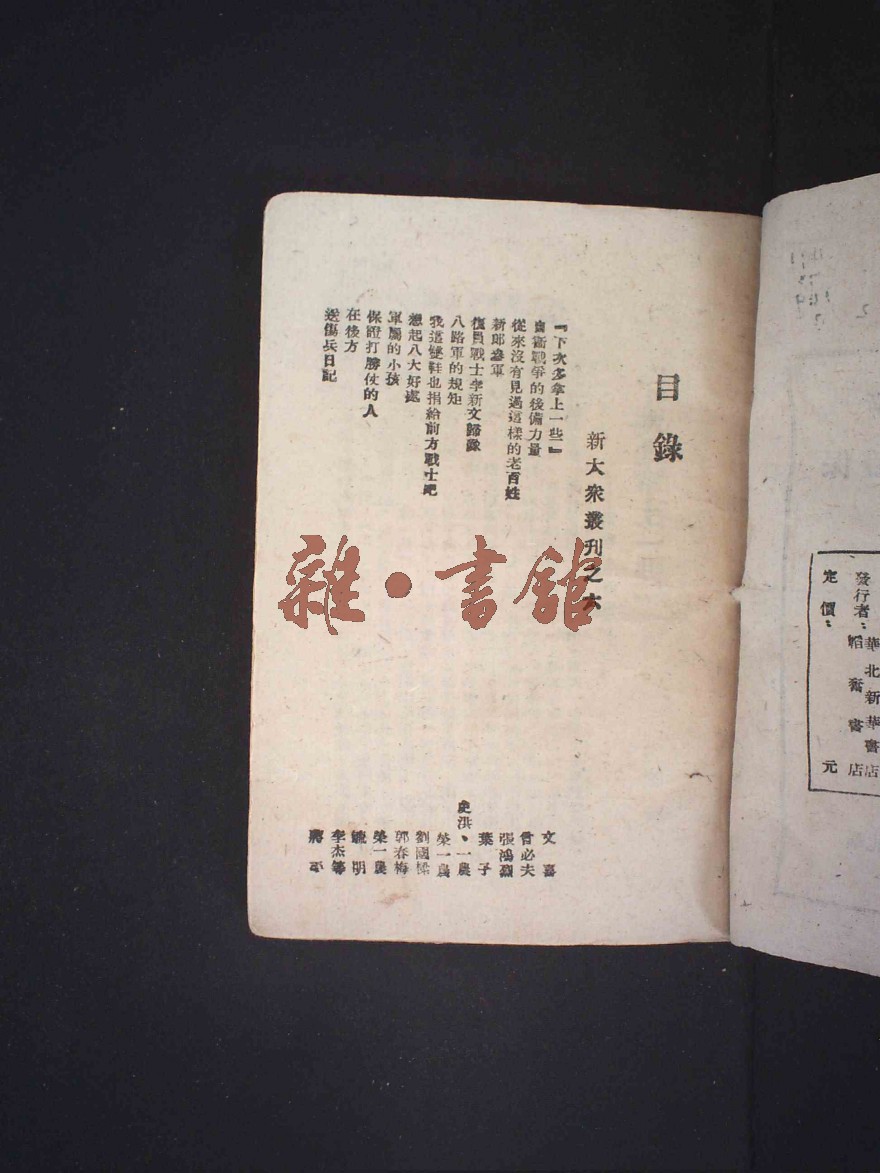 目錄
新大衆叢刊之六
『下次多拿上一些』 文喜
自衞戰爭的後備力量 曾必夫
從來沒有見過這樣的老百姓 張鴻
新郎參軍 葉子
復員戰士李新文歸隊 史洪、一農
八路軍的規矩 榮一農
我這雙鞋也捐給前方戰士吧 劉國樑
想起八大好處 郭春梅
軍屬的小孩 榮一農
保證打勝仗的人 明
在後方 李杰等
送傷兵日記 蔣平
發行者：華北新華書店
韜奮書店
定價： 元
雜·書館